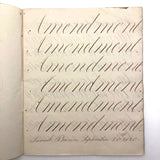 Amendment.
Amendment.
Amendment.
Amendment.
Amendment.
Amendment.
Amendment.